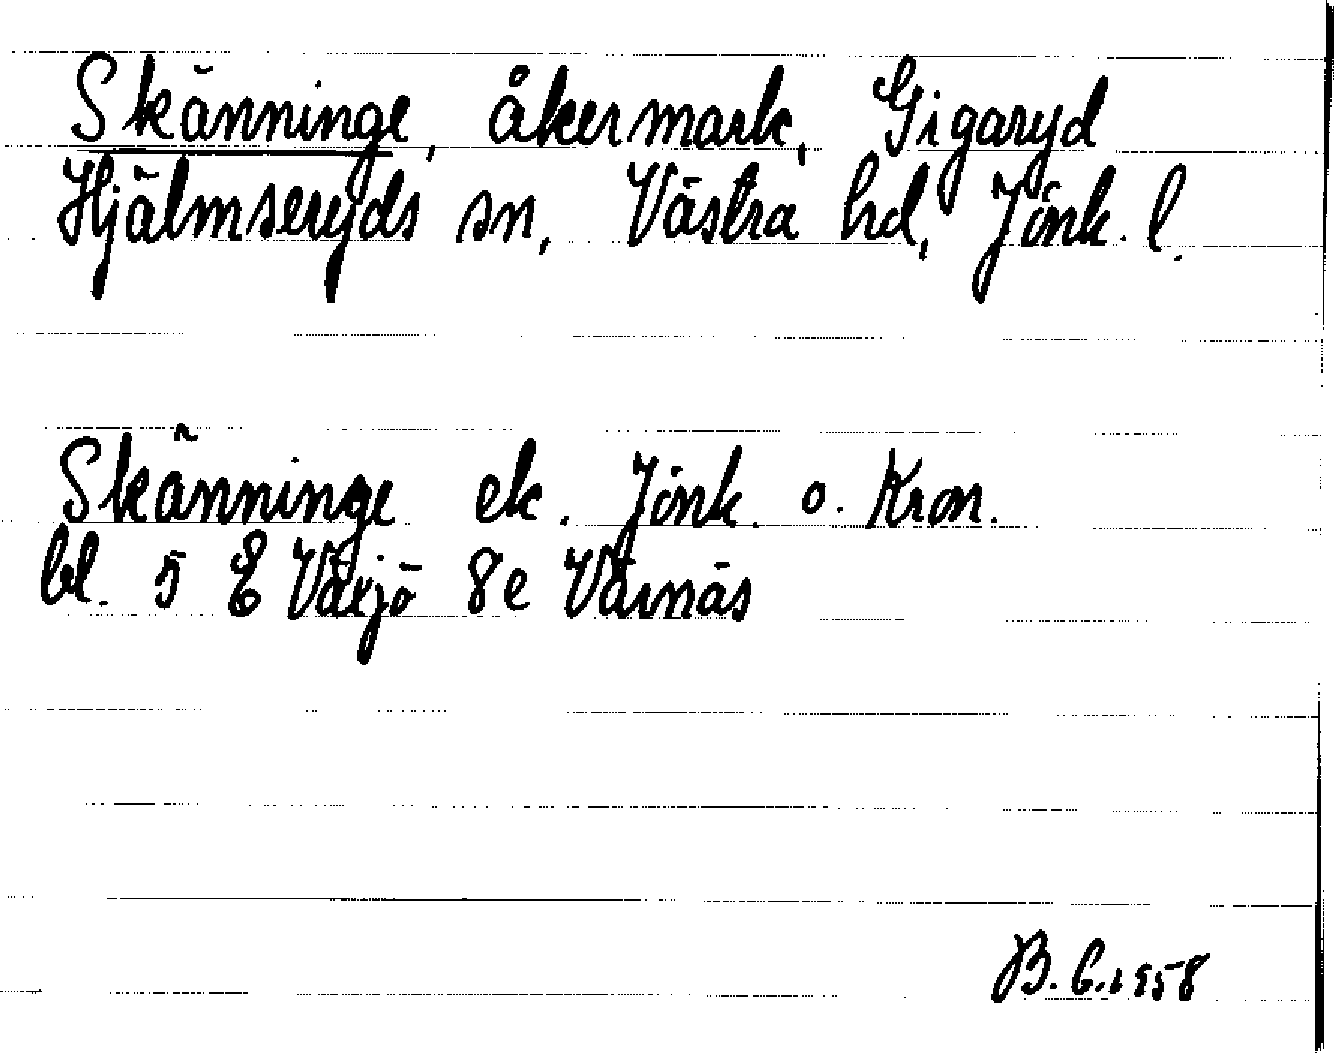 Skänninge, åkermark, Gigaryd
Hjälmseryds sn, Västra hd, Jönk. l.
Skänninge ek. Jönk. o. Kron.
bl. 5 E Växjö 8e Värnäs
B. G. 1958